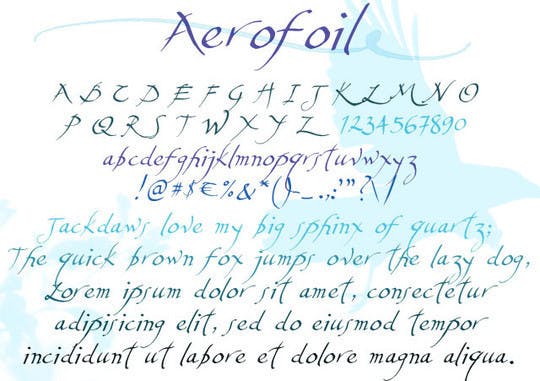 Aerofoil
A B C D E F G H I J K L M N O
P Q R S T W X Y Z 1234567890
abcdefghijklmnopqrstuvwxyz
!@#$€%&*()-_.,:;'"?\|
Jackdaws love my big sphinx of quartz;
The quick brown fox jumps over the lazy dog,
Lorem ipsum dolor sit amet, consectetur
adipisicing elit, sed do eiusmod tempor
incididunt ut labore et dolore magna aliqua.